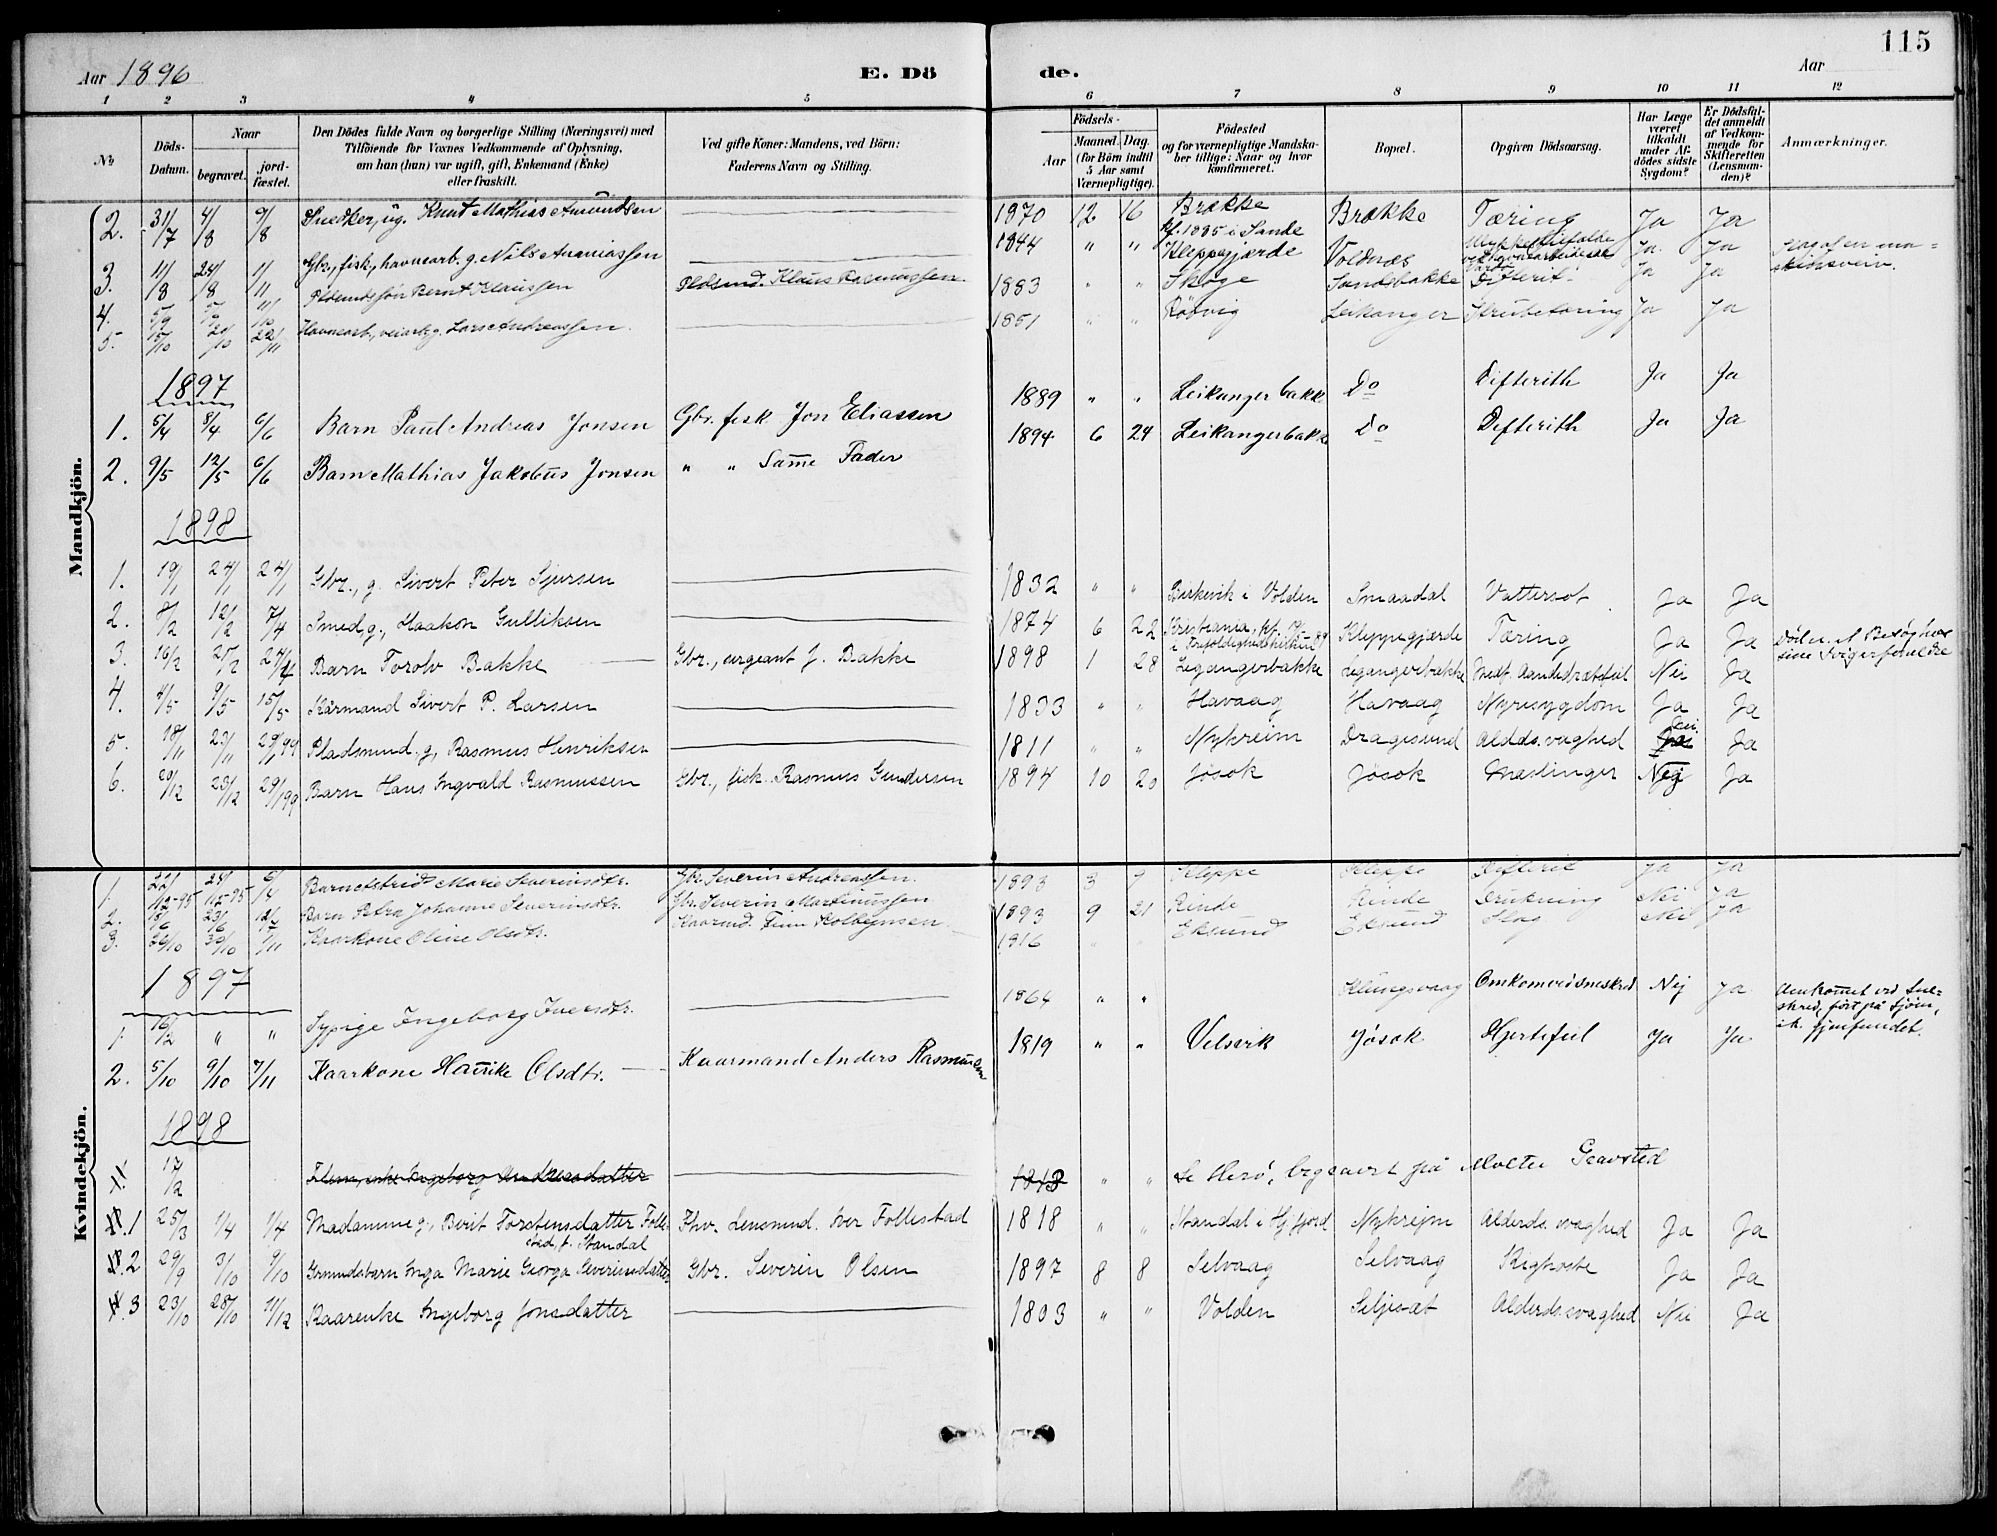 115
Aar 1896
E. Dö
de.
Aar
1 2 3 4 5 6 7 8 9 10 11 12
No
Döds-Datum.
Naar
begravet.
jord-fæstet.
Den Dödes fulde Navn og borgerlige Stilling (Næringsvei) med
Tilföiende for Voxnes Vedkommende af Oplysning,
om han (hun) var ugift, gift, Enkemand (Enke)
eller fraskilt.
Ved gifte Koner: Mandens, ved Börn:
Faderens Navn og Stilling.
Födsels-
Aar
Maaned. Dag.
(for Börn indtil
5 Aar samt
Værnepligtige).
Födested
og for værnepligtige Mandska-
ber tillige: Naar og hvor
konfirmeret.
Bopæl.
Opgiven Dödsaarsag.
Har Læge
været
tilkaldt
under Af-
dödes sidste
Sygdom?
Er Dödsfal-
det anmeldt
af Vedkom-
mende for
Skifteretten
(Lensman-
den)?
Anmærkninger.
Mandkjön.
2. 31/7 4/8 9/8 Snedker, ug. Knut Mathias Amundsen 1870 12 16 Brække kf. 1885 i Sande Brække Tæring Ja Ja
3. 11/8 24/8 1/11 Gbr., fisk, havnearb. g. Nils Ananiassen 1844 " " Kleppegjærde Voldnæs Ja Ja
4. 5/9 Pldsmdssøn Bernt Klaussen Pldsmd. Klaus Rasmussen 1883 " " Skoge Sandsbakke Difterit Ja Ja
5. 15/10 20/10 22/11 Havnearb., veiarb. g. Lars Andreassen 1851 " " Røbvig Leikanger Strubetæring Ja Ja
1897
1. 5/4 8/4 6/6 Barn Paul Andreas Jonsen Gbr. fisk Jon Eliassen 1889 " " Leikangerbakk Do Difterith Ja Ja
2. 9/5 12/5 6/6 Barn Mathias Jakobus Jonsen " " Samme Fader 1894 6 24 Leikangerbakk Do Difterith Ja Ja
1898
1. 19/1 24/1 24/1 Gbr., g. Sivert Peter Sjursen 1832 " " Birkevik i Volden Smaadal Vattersot Ja Ja
2. 8/2 12/2 7/4 Smed, g., Haakon Gulliksen 1874 6 22 Kristiania, kf. Kleppegjærde Tæring Ja Ja Døde u. et Besøg hos sine Svigerforældre
3. 16/2 21/2 24/4 Barn Torolv Bakke Gbr., sergeant J. Bakke 1898 1 28 Legangerbakke Legangerbakke Medf. Aandedrætsfeil Nei Ja
4. 4/5 9/5 15/5 Kårmand Sivert P. Larsen 1833 " " Havaag Havaag Nyresygdom Ja Ja
5. 18/11 23/11 29/1 99 Pladsmd. g, Rasmus Henriksen 1811 " " Nykreim Dragesund Aldds.svaghed Nei Ja
6. 20/12 23/12 29/1 99 Barn Hans Ingvald Rasmussen Gbr., fisk. Rasmus Gundersen 1894 10 20 Jøsok Jøsok Mæslinger Nej Ja
Kvindekjön.
1. 22/12-95 24/12-95 6/4 Barn Astrid Marie Severinsdtr. Gbr. Severin Andreassen 1893 3 9 Kleppe Kleppe Difterit Ja Ja
2. 18/6 23/6 12/7 Barn Petra Johanne Severinsdtr. Gbr. Severin Martinussen 1893 9 21 Rinde Rinde Drukning Nei Ja
3. 26/10 30/10 1/11 Kaarkone Oline Olsdtr. Kaarmd. Finn Kolbeinsen 1816 " " Eksund Eksund Slag Nei Ja
1897
1. 16/2 " " Sypige Ingeborg Iversdtr. 1864 " " Klungsvaag Omkom ved sneskred Nej Ja Omkommet ved Sneskred, ført på Sjøen, ik. gjenfundet.
2. 5/10 9/10 7/11 Kaarkone Haurike Olsdtr. Kaarmand Anders Rasmussen 1819 " " Velsvik Jøsok Hjertefeil Ja Ja
1898
17/2 Ingeborg Andreasdatter 1813 " " Se Herø, begravet på Molten Gravsted
1 25/3 1/4 1/4 Madamme g., Berit Torstensdatter Follestad, f. Standal Fhv. Lensmd. Iver Follestad 1818 " " Standal i Hj.fjord Nykrejm Alderds.svaghed Ja Ja
2 29/9 3/10 9/10 Grmdsbarn Inga Marie Georga Severinsdatter Gbr. Severin Olsen 1897 8 8 Selvaag Selvaag Kighoste Ja Ja
3 23/10 28/10 11/12 Kaarenke Ingeborg Jonsdatter 1803 " " Volden Seljeset Alderds.svaghed Nei Ja